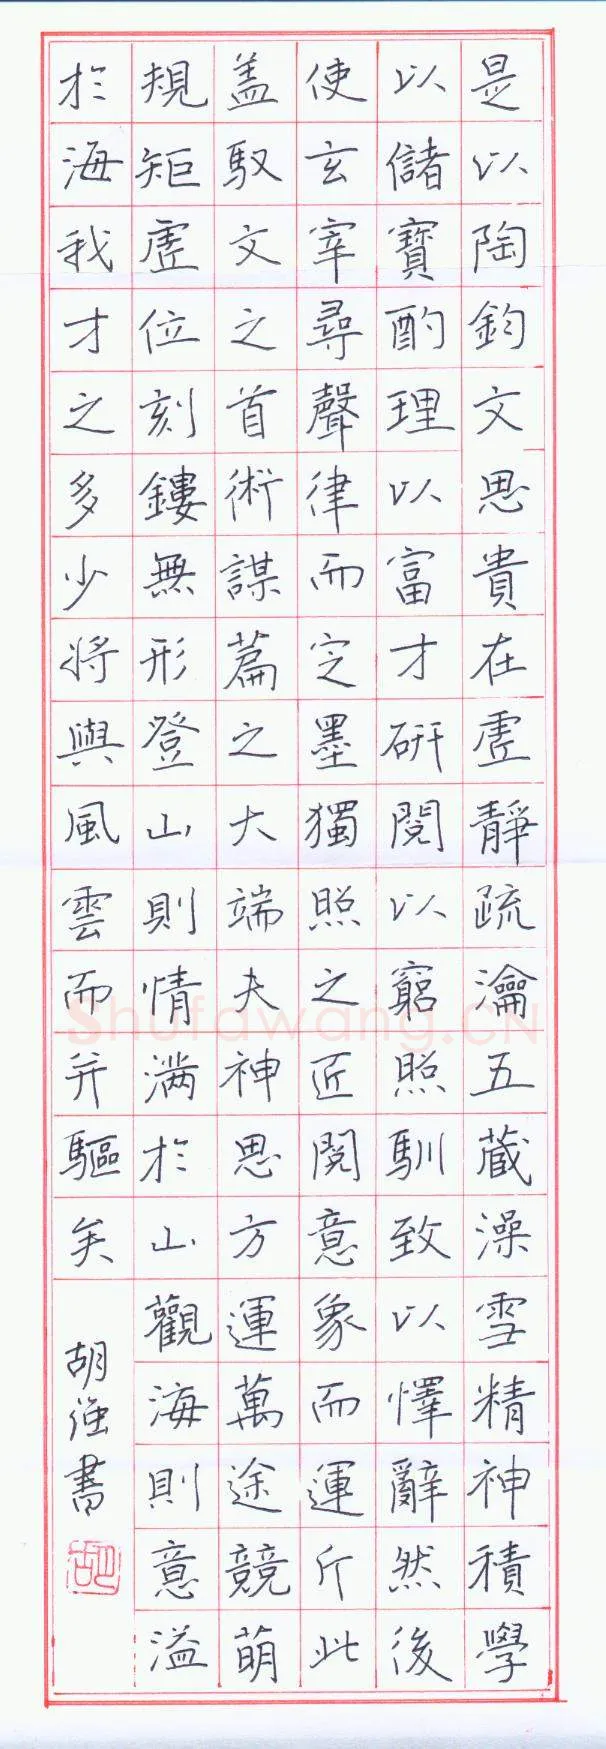 是以陶鈞文思貴在虛靜疏瀹五藏澡雪精神積學
以儲寶酌理以富才研閱以窮照馴致以懌辭然後
使玄宰尋聲律而定墨獨照之匠闚意象而運斤此
蓋馭文之首術謀篇之大端夫神思方運萬途競萌
規矩虛位刻鏤無形登山則情滿於山觀海則意溢
於海我才之多少將與風雲而并驅矣
胡強書
胡
Shufawang.CN